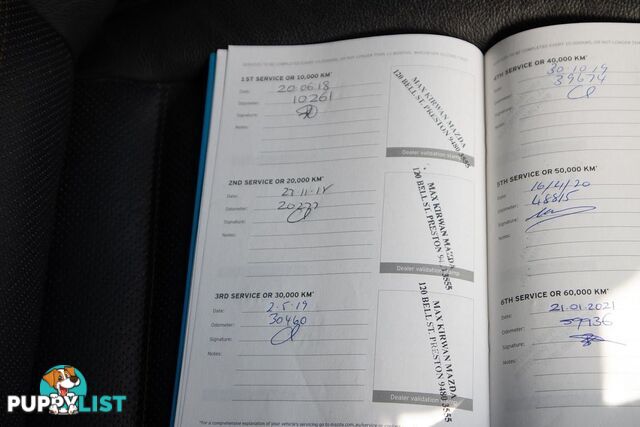 SERVICES TO BE COMPLETED EVERY 10,000KMS, OR NOT LONGER THAN 12 MONTHS, WHICHEVER OCCURS FIRST
1ST SERVICE OR 10,000 KM*
Date: 20.06.18
Odometer: 10261
Signature:
Notes:
MAX KIRWAN MAZDA
120 BELL ST. PRESTON 9480 3555
Dealer validation stamp
2ND SERVICE OR 20,000 KM*
Date: 27.11.18
Odometer:
Signature:
Notes:
MAX KIRWAN MAZDA
120 BELL ST. PRESTON 9480 3555
Dealer validation stamp
3RD SERVICE OR 30,000 KM*
Date: 2.5.19
Odometer: 30460
Signature:
Notes:
MAX KIRWAN MAZDA
120 BELL ST. PRESTON 9480 3555
Dealer validation stamp
*For a comprehensive explanation of your vehicle's servicing go to mazda.com.au/service or contact
4TH SERVICE OR 40,000 KM*
Date: 30.10.19
Odometer: 39674
Signature:
Notes:
5TH SERVICE OR 50,000 KM*
Date: 16/4/20
Odometer: 48815
Signature:
Notes:
6TH SERVICE OR 60,000 KM*
Date: 21.01.2021
Odometer: 59936
Signature:
Notes:
PUPPYLIST